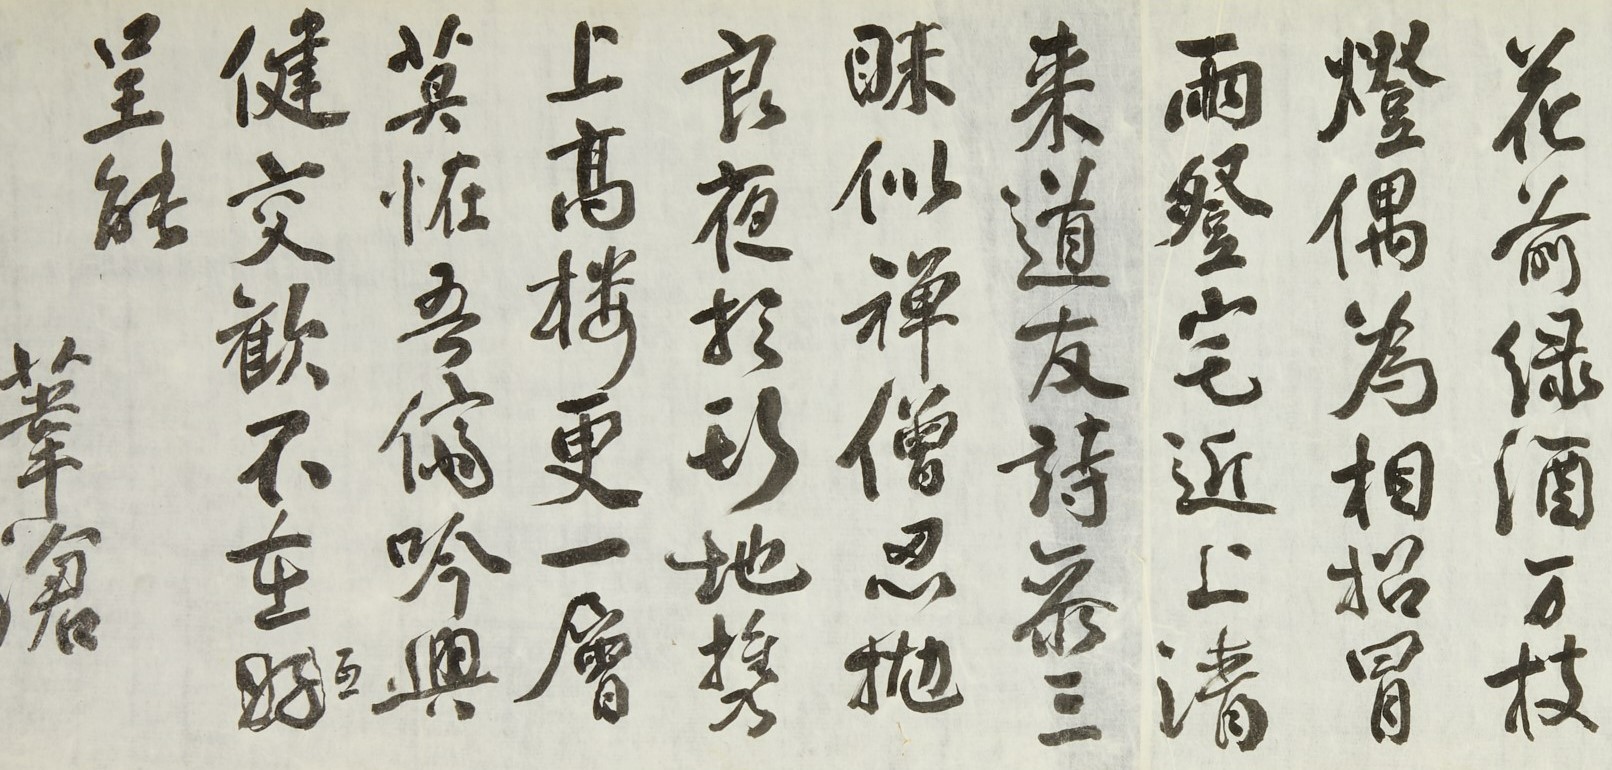 花前绿酒万枝
燈偶為相招冒
雨登宅近上清
来道友詩豪三
昧似禅僧忍抛
良夜於形地携
上高楼更一層
莫恠吾儕吟興
健交歡不在互
呈能
葦滄